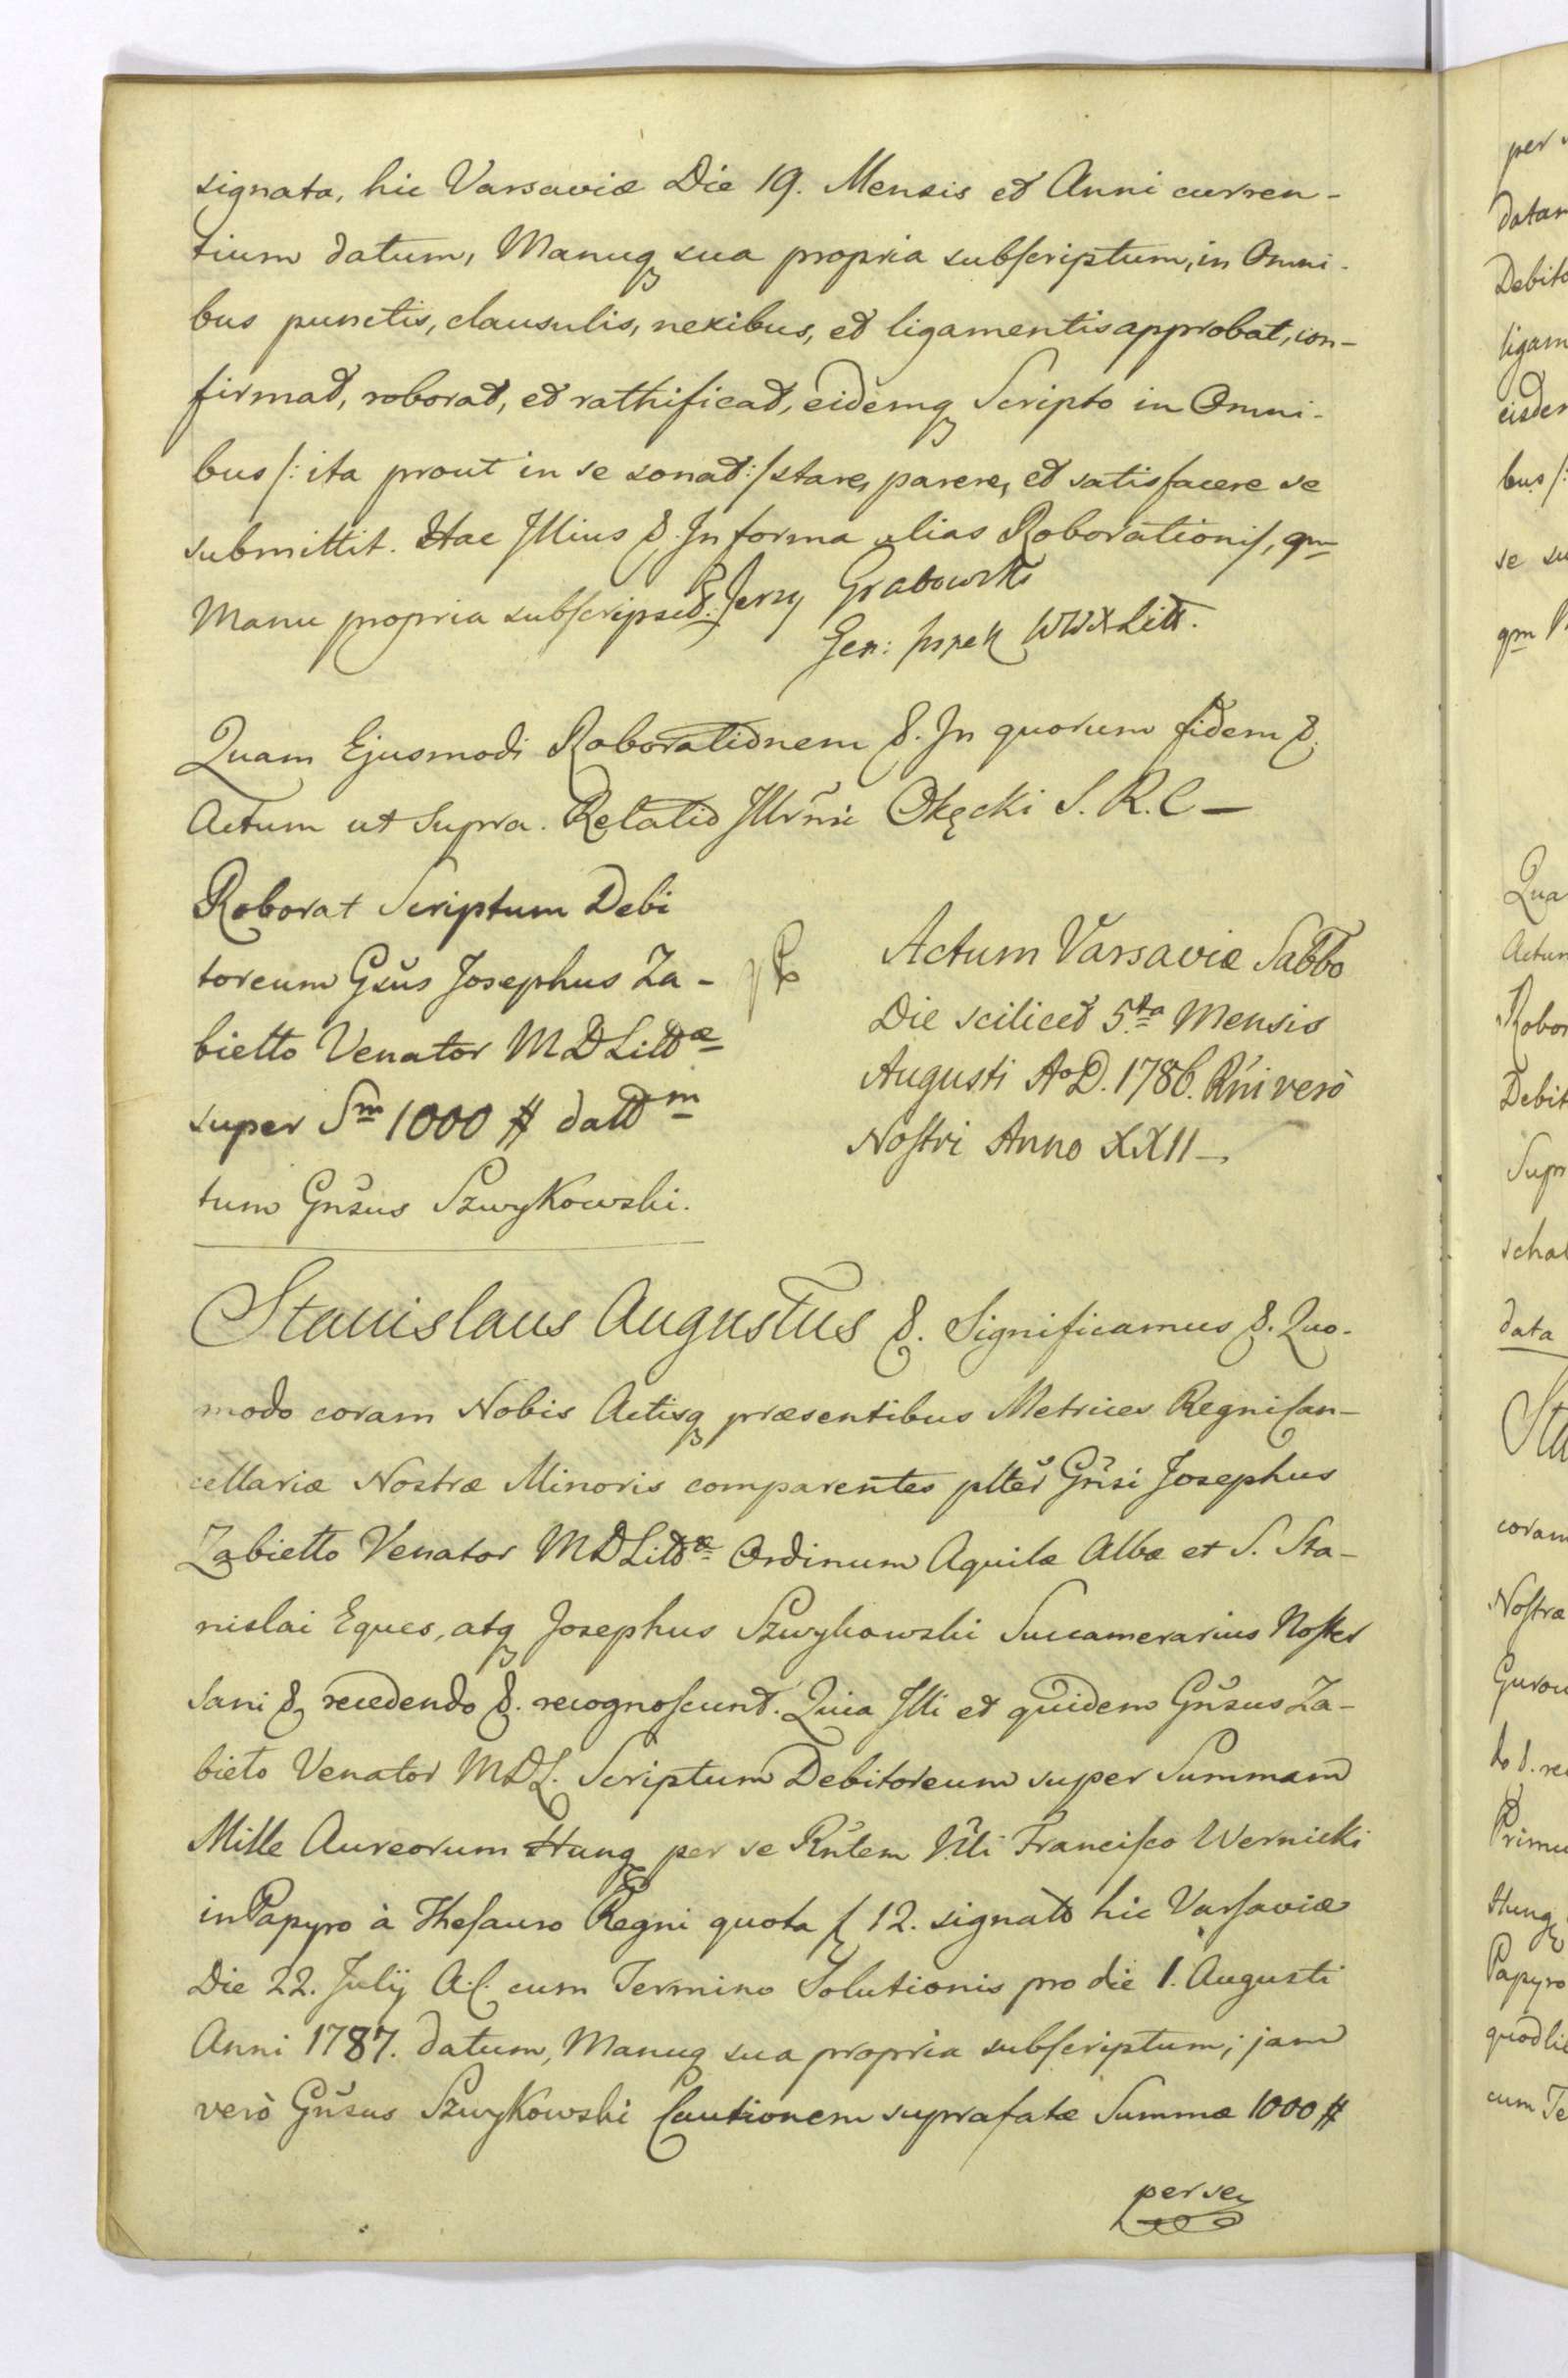 signata, hic Varsaviæ Die 19. Mensis et Anni curren-
tium datum, Manuq sua propria subscriptum, in Omni-
bus punctis, clausulis, nexibus, et ligamentis approbat, con-
firmat, roborat, et rathificat, eidemq Scripto in Omni-
bus /: ita prout in se sonat :/ stare, parere, et satisfacere se
submittit. Hac Illius &. In forma alias Roborationis, qm
Manu propria subscripsit. Jerzy Grabowski
Gen: WWX Litt.
Quam Ejusmodi Roborationem &. In quorum fidem &.
Actum ut Supra. Relatio Illrmi Okęcki S. R. C —
Roborat Scriptum Debi
toreum Gsus Josephus Za-
biello Venator MDLittæ
super Sm 1000 # datt m
tum Gnsus Szwykowski.
Actum Varsaviæ Sabbo
Die scilicet 5.ta Mensis
Augusti AoD. 1786. Rni verò
Nostri Anno XXII —
Stanislaus Augustus &. Significamus &. Quo-
modo coram Nobis Actisq præsentibus Metrices Regni Can-
cellariæ Nostræ Minoris comparentes plter Gnsi Josephus
Zabiello Venator MDLittæ Ordinum Aquilæ Albæ et S. Sta-
nislai Eques, atq Josephus Szwykowski Succamerarius Noster
sani & recedendo &. recognoscunt. Quia Illi et quidem Gnsus Za-
bieło Venator MDL. Scriptum Debitoreum super Summam
Mille Aureorum Hung per se Rntem Nli Francisco Wernicki
in Papyro à Thesauro Regni quota f 12. signato hic Varsaviæ
Die 22. Julij A.C. cum Termino Solutionis pro die 1. Augusti
Anni 1787. datum, Manuq sua propria subscriptum; jam
verò Gnsus Szwykowski Cautionem suprafatæ Summæ 1000 #
per se
per
datam
Debito
ligam
eidem
bus /:
se su
qm
Qua
Actum
Robor
Debit
Supr
scha
data
Sta
coram
Nostræ
Gurow
do &. re
Primu
Hung
Papyro
quodli
cum Te